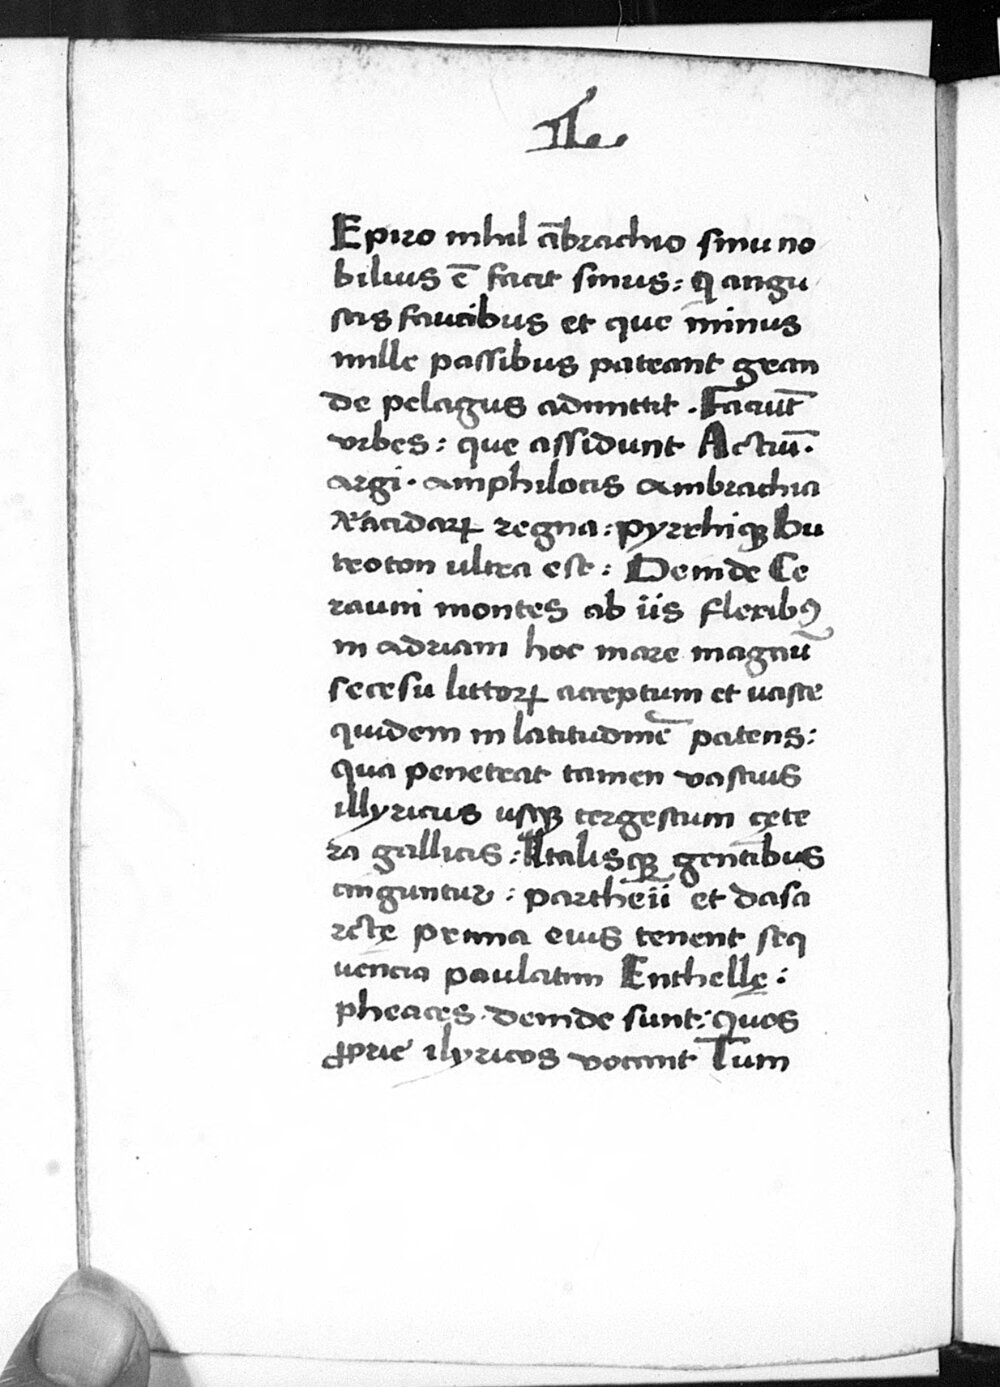 Epiro nihil ābrachio sinu no
bilius ē facit sinus: q̄ angu
stis faucibus et que minus
mille passibus pateant gran
de pelagus admittit. Faciūt
vrbes: que assidunt Actiū.
argi. amphilocis ambrachia
Aeacidaꝝ regna: pyrrhiqꝫ bu
troton ultra est: Deinde Ce
rauni montes ab iis flexibꝰ
in adriam hoc mare magnū
secesu littoꝝ acceptum et uaste
quidem in latitudinē patens:
qua penetrat tamen vastius
illyricus usqꝫ tergestum cęte
ra gallicis: Italisqꝫ gentibus
cinguntur: partheii et dasa
rete prima eius tenent seq
uencia paulatim Enthellę:
pheaces. deinde sunt: quos
ꝓprie ilyricos vocant Tum